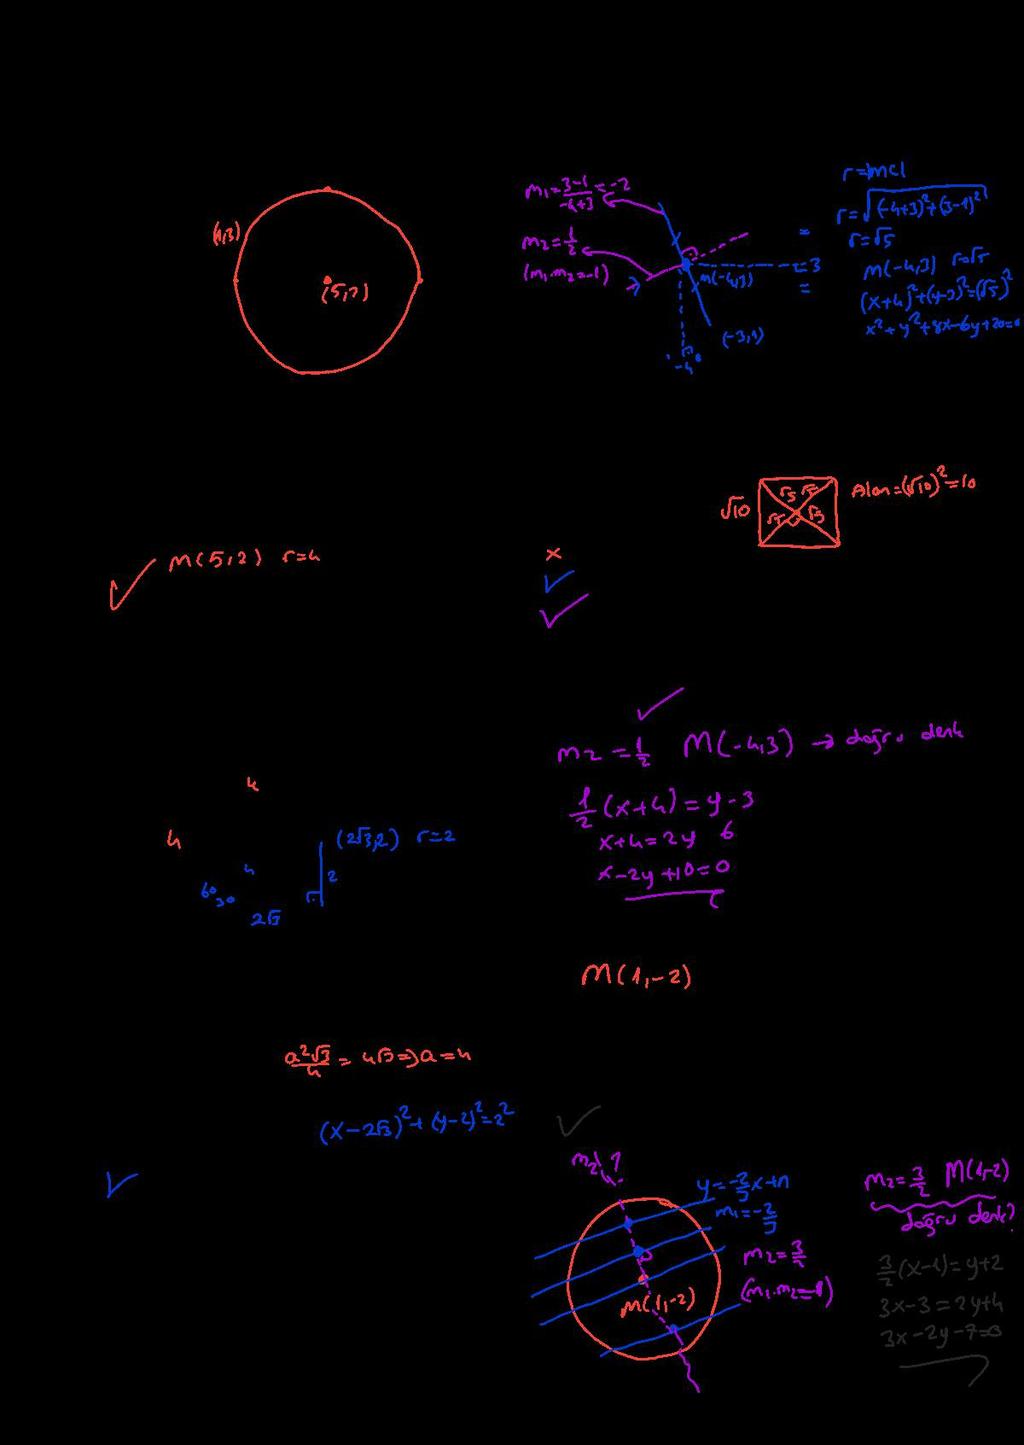 (1,3)
(5,2)
m₁=3-1/-4+3=-2
m₂=1/2
(m₁.m₂=-1)
M(-4,3)
=3
(-3,1)
-4
r=√(-4+3)²+(3-1)²
r=√5
M(-4,3) r=√5
(x+4)²+(y-3)²=(√5)²
x²+y²+8x-6y+20=0
√10
√5 √5
√5 √5
Alan=(√10)²=10
M(5,2) r=4
x
m₂=1/2 M(-4,3) → doğru denk
1/2(x+4)=y-3
x+4=2y 6
x-2y+10=0
4
4
(2√3,2) r=2
4
2
60
30
2√3
M(1,-2)
a²√3/4=4√3⇒a=4
(x-2√3)²+(y-2)²=2²
m₂
y=-2/3x+n
m₁=-2/3
m₂=3/2
(m₁.m₂=-1)
M(1,-2)
m₂=3/2 M(1,-2)
doğru denk?
3/2(x-1)=y+2
3x-3=2y+4
3x-2y-7=0